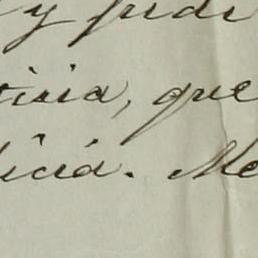 y pudi
ticia, que
licia. Me